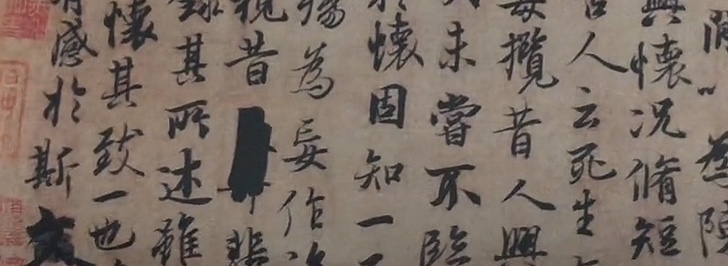 間以為陳
興懷況脩短
古人云死生
每攬昔人興
未嘗不臨
於懷固知一
殤為妄作後
視昔悲
錄其所述雖
懷其致一也
有感於斯文